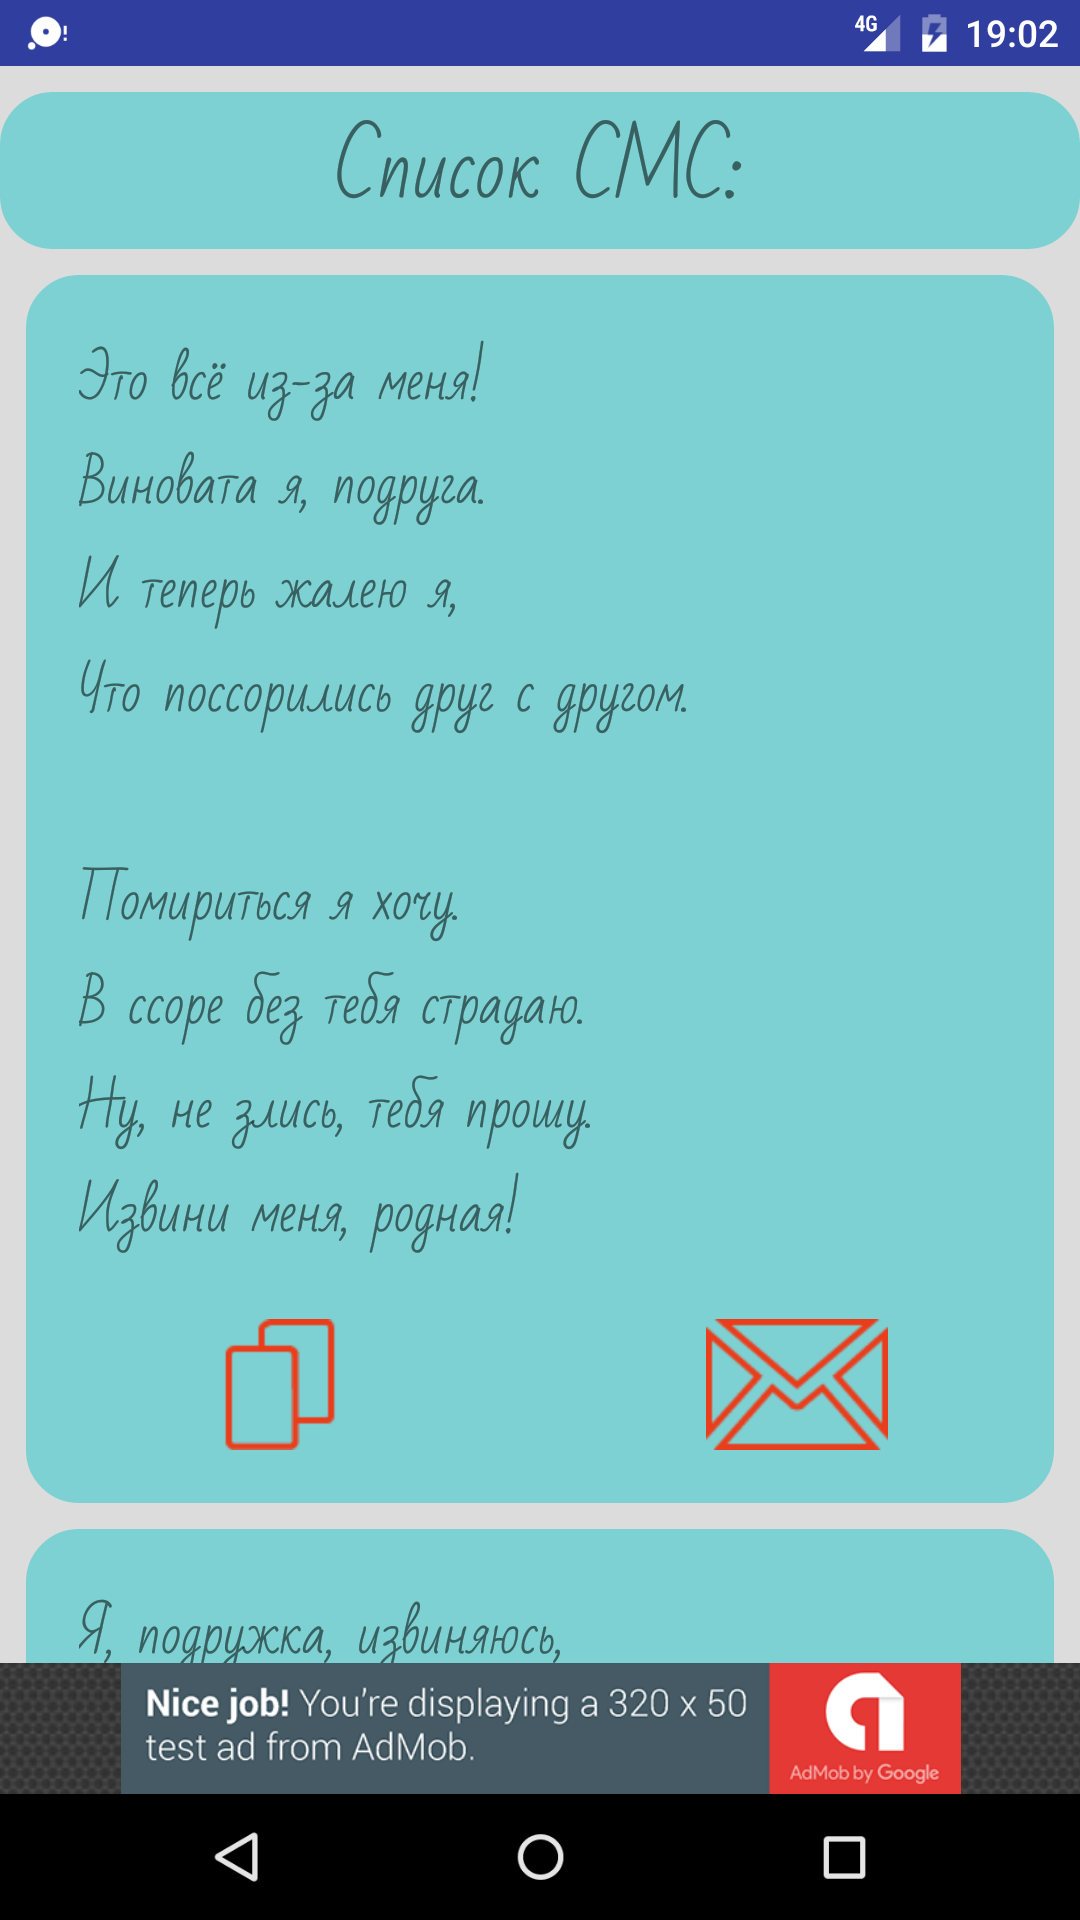 4G 19:02
Список СМС:
Это всё из-за меня!
Виновата я, подруга.
И теперь жалею я,
Что поссорились друг с другом.
Помириться я хочу.
В ссоре без тебя страдаю.
Ну, не злись, тебя прошу.
Извини меня, родная!
Я, подружка, извиняюсь,
Nice job! You're displaying a 320 x 50
test ad from AdMob.
AdMob by Google